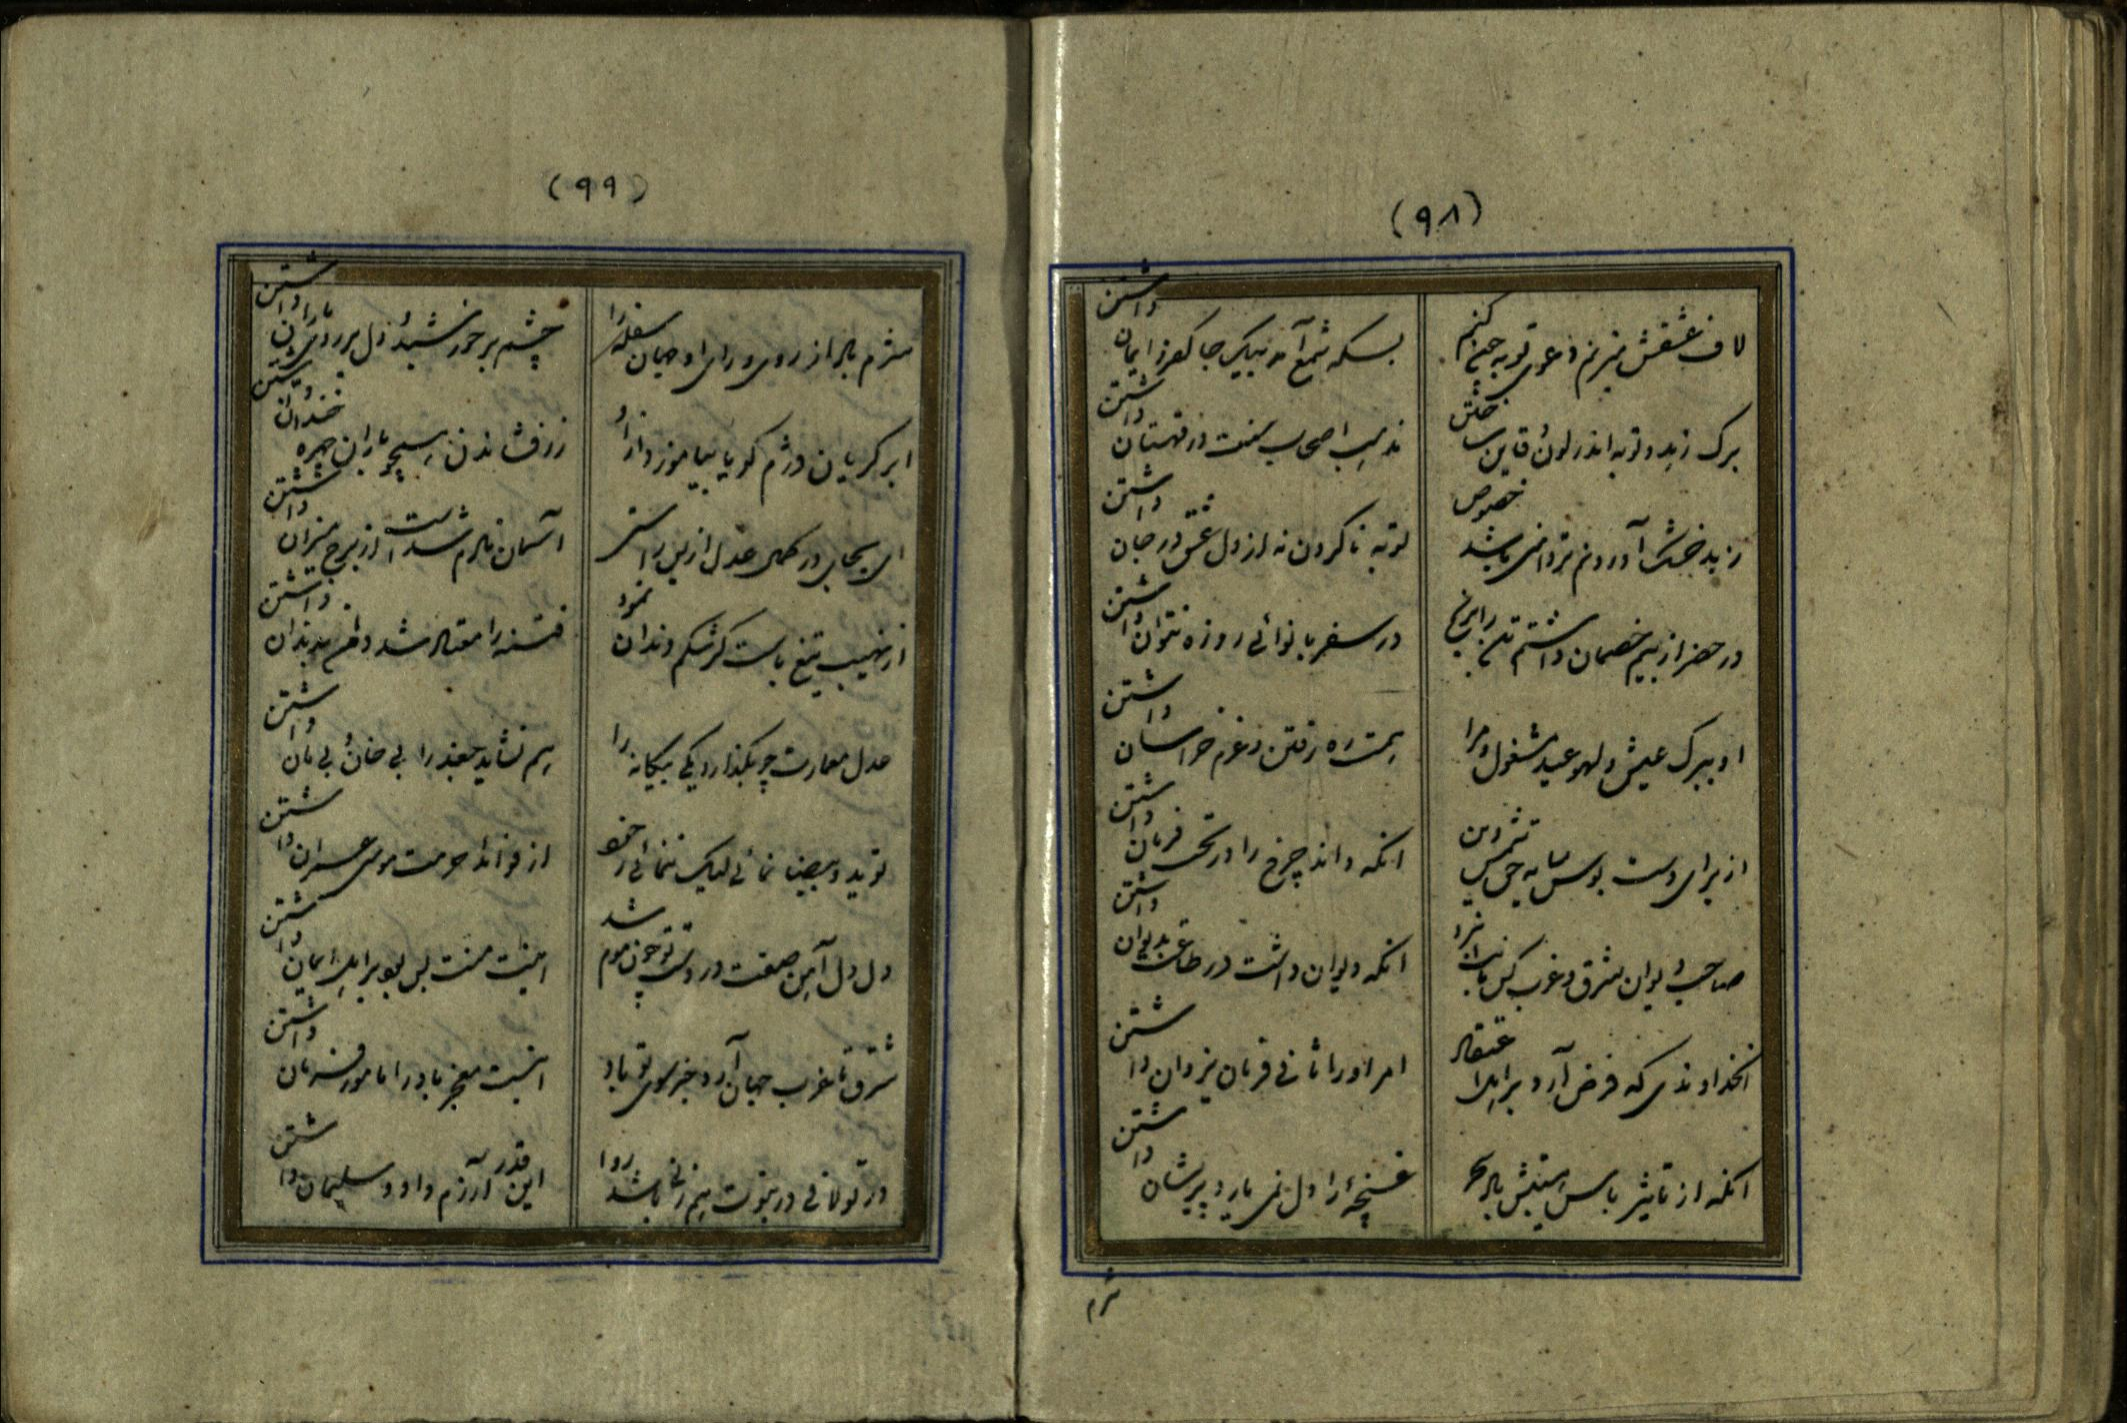 (۹۸)
لاف عشقش میزنم دعوی توبه چون کنم
بسکه شمع آمد بیک جا کفر و ایمان داشتن
برگ زهد و توبه اندر لون قاین ساختن
مذهب اصحاب سنت در قهستان داشتن
زهد خشک آوردنم تردامنی باشد خصوص
توبه ناکردن نه از دل عشق در جان داشتن
در حضر از بیم خصمان داشتم
در سفر با نوائی روزه نتوان داشتن
او ببرک عیش و لهو عید مشغول و مرا
همت ره رفتن و عزم خراسان داشتن
از برای دست بوس سایه حق شمس دین
انکه داند چرخ را در تحت فرمان داشتن
صاحب دیوان شرق و غرب کس
انکه دیوان داشت در طاعت بدیوان داشتن
انخداوندی که فرض آرد بر اهل اعتقاد
امر او را ثانی فرمان یزدان داشتن
انکه از تاثیر باس هیبتش باد سحر
غنچه را دل نمی یارد پریشان داشتن
شرم
(۹۹)
شرم باد از روی و رای او جهان سفله را
چشم بر خورشید دل بر روی یاران داشتن
ابر گریان درژم گویا بیاموزد ازو
زرفشاندن همچو باران چهره خندان داشتن
ای بجایی در کمال عدل ازین راستی
آسمان نادم شدست از برج میزان داشتن
از نهیب تیغ باست گر شکم دندان نمود
فتنه را معتاد شد دایم بدندان داشتن
عدل معمارت چو بگذارد یکی بیگانه را
هم نشاید جغد را بی خان و بی مان داشتن
تو ید و بیضا نمائی لیک ننمائی رخصه
از فواید حرمت موسی عمران داشتن
دل دل آهن صفت در دست تو چون موم شد
اینت منت بس بود بر اهل ایمان داشتن
شرق تا غرب جهان آرد خبر سوی تو باد
اینت معجز باد را مامور فرمان داشتن
در تو لافی در نبوت هم زند باشد روا
این قدر آزرم داود و سلیمان داشتن